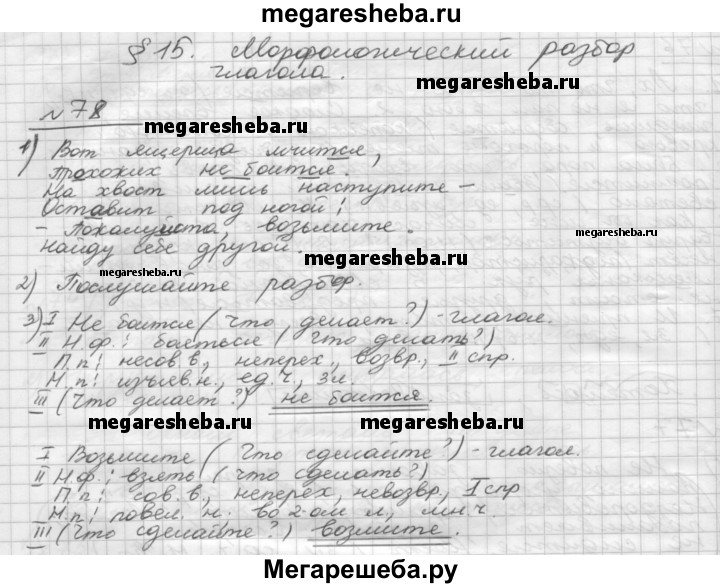 megaresheba.ru
§ 15. Морфологический разбор
глагола.
megaresheba.ru
№78
megaresheba.ru
1) Вот ящерица мчится,
Прохожих не боится.
На хвост лишь наступите –
Оставит под ногой!
- Пожалуйста, возьмите.
megaresheba.ru
Найду себе другой.
megaresheba.ru
2) Послушайте разбор.
3) I Не боится (Что делает?) - глагол.
II Н.ф.: бояться (Что делать?)
П.п: несов.в, неперех., возвр., II спр.
Н.п: изъяв.н., ед.ч, 3л.
III (Что делает?) не боится.
megaresheba.ru
megaresheba.ru
I Возьмите (Что сделайте?) - глагол.
II Н.ф.: взять (что сделать?)
П.п: сов.в, неперех, невозвр, I спр
Н.п: повел. н. во 2-ом л, мн.ч.
III (Что сделайте?) возмите.
megaresheba.ru
megaresheba.ru
Мегарешеба.ру